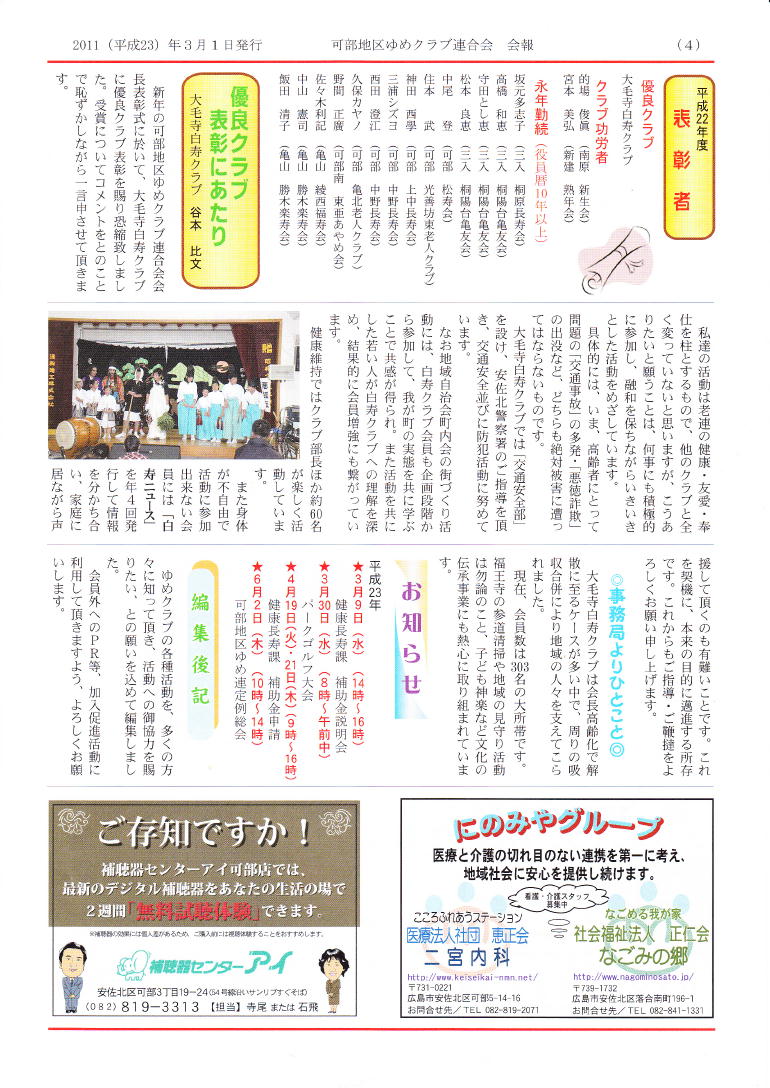 2011（平成23）年３月１日発行
可部地区ゆめクラブ連合会　会報
（４）
平成22年度
表彰者
優良クラブ
大毛寺白寿クラブ
クラブ功労者
的場　俊眞（南原　新生会）
宮本　美弘（新建　熟年会）
永年勤続（役員暦10年以上）
坂元多志子（三入　桐原長寿会）
高橋　和恵（三入　桐陽台亀友会）
守田とし恵（三入　桐陽台亀友会）
松本　良恵（三入　桐陽台亀友会）
中尾　登（可部　松寿会）
住本　武（可部　光善坊東老人クラブ）
神田　西學（可部　上中長寿会）
三浦シズヨ（可部　中野長寿会）
西田　澄江（可部　中野長寿会）
久保カヤノ（可部　亀北老人クラブ）
野間　正廣（可部南　東亜あやめ会）
佐々木利記（亀山　綾西福寿会）
中山　憲司（亀山　勝木楽寿会）
飯田　清子（亀山　勝木楽寿会）
優良クラブ
表彰にあたり
大毛寺白寿クラブ　谷本　比文
新年の可部地区ゆめクラブ連合会会
長表彰式に於いて、大毛寺白寿クラブ
に優良クラブ表彰を賜り恐縮致しまし
た。受賞についてコメントをとのこと
で恥ずかしながら一言申させて頂きま
す。
私達の活動は老連の健康・友愛・奉
仕を柱とするもので、他のクラブと全
く変っていないと思いますが、こうあ
りたいと願うことは、何事にも積極的
に参加し、融和を保ちながらいきいき
とした活動をめざしています。
具体的には、いま、高齢者にとって
問題の「交通事故」の多発・「悪徳詐欺」
の出没など、どちらも絶対被害に遭っ
てはならないものです。
大毛寺白寿クラブでは「交通安全部」
を設け、安佐北警察署のご指導を頂
き、交通安全並びに防犯活動に努めて
います。
なお地域自治会町内会の街づくり活
動には、白寿クラブ会員も企画段階か
ら参加して、我が町の実態を共に学ぶ
ことで共感が得られ。また活動を共に
した若い人が白寿クラブへの理解を深
め、結果的に会員増強にも繋がってい
ます。
健康維持ではクラブ部長ほか約60名
が楽しく活
動していま
す。
また身体
が不自由で
活動に参加
出来ない会
員には「白
寿ニュース」
を年４回発
行して情報
を分かち合
い、家庭に
居ながら声
援して頂くのも有難いことです。これ
を契機に、本来の目的に邁進する所存
です。これからもご指導・ご鞭撻をよ
ろしくお願い申し上げます。
◎事務局よりひとこと◎
大毛寺白寿クラブは会長高齢化で解
散に至るケースが多い中で、周りの吸
収合併により地域の人々を支えてこら
れました。
現在、会員数は303名の大所帯です。
福王寺の参道清掃や地域の見守り活動
は勿論のこと、子ども神楽など文化の
伝承事業にも熱心に取り組まれていま
す。
お知らせ
平成23年
★３月９日（水）（14時〜16時）
健康長寿課　補助金説明会
★３月30日（水）（８時〜午前中）
パークゴルフ大会
★４月19日（火）・21日（木）（９時〜16時）
健康長寿課　補助金申請
★６月２日（木）（10時〜14時）
可部地区ゆめ連定例総会
編集後記
ゆめクラブの各種活動を、多くの方
々に知って頂き、活動への御協力を賜
りたい、との願いを込めて編集しまし
た。
会員外へのＰＲ等、加入促進活動に
利用して頂きますよう、よろしくお願
いします。
にのみやグループ
医療と介護の切れ目のない連携を第一に考え、
地域社会に安心を提供し続けます。
看護・介護スタッフ
募集中
こころふれあうステーション
医療法人社団　恵正会
二宮内科
http://www.keiseikai-nmn.net/
〒731-0221
広島市安佐北区可部5-14-16
お問合せ先／TEL 082-819-2071
なごめる我が家
社会福祉法人　正仁会
なごみの郷
http://www.nagominosato.jp/
〒739-1732
広島市安佐北区落合南町196-1
お問合せ先／TEL 082-841-1331
ご存知ですか！
補聴器センターアイ可部店では、
最新のデジタル補聴器をあなたの生活の場で
２週間「無料試聴体験」できます。
※補聴器の効果には個人差があるため、ご購入前には視聴体験することをおすすめします。
補聴器センターアイ
安佐北区可部3丁目19−24（54号線沿いサンリブすぐそば）
（082）819−3313　【担当】寺尾 または 石飛